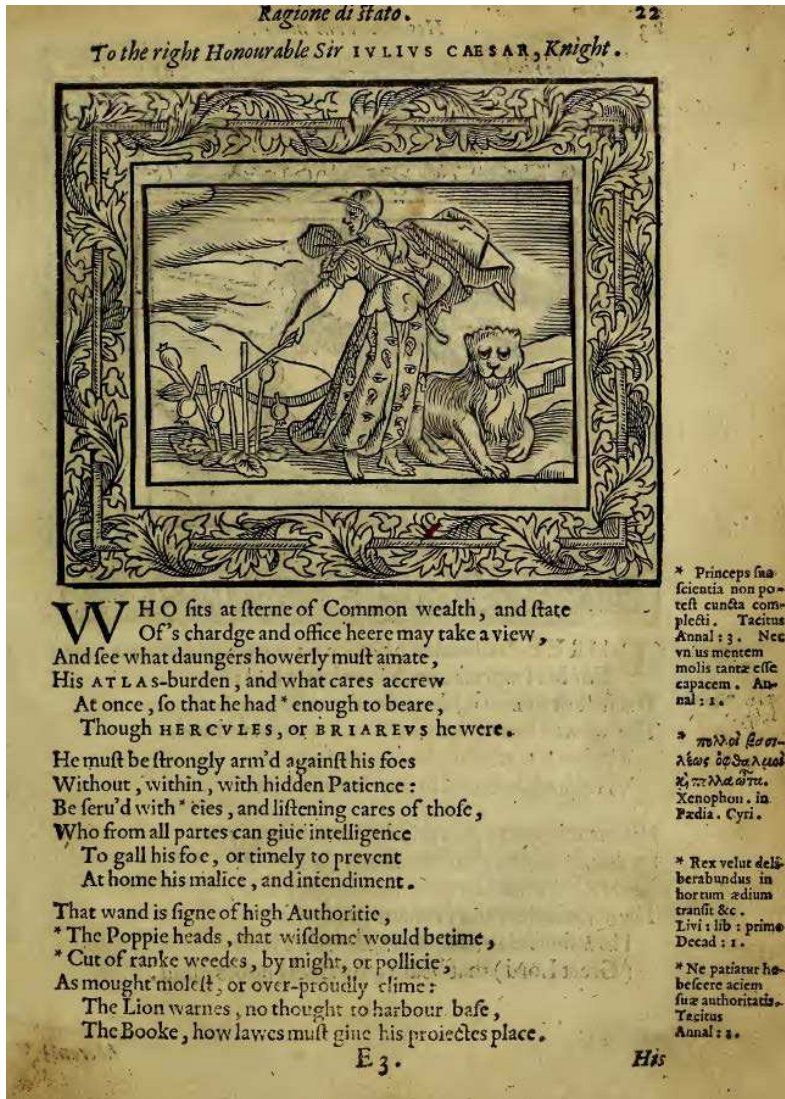 Ragione di stato.
22
To the right Honourable Sir IVLIVS CAESAR, Knight.
WHO sits at sterne of Common wealth, and state
Of's chardge and office heere may take a view,
And see what daungers howerly must amate,
His ATLAS-burden, and what cares accrew
At once, so that he had * enough to beare,
Though HERCVLES, or BRIAREVS he were.
He must be strongly arm'd against his foes
Without, within, with hidden Patience:
Be seru'd with * eies, and listening eares of those,
Who from all partes can giue intelligence
To gall his foe, or timely to prevent
At home his malice, and intendiment.
That wand is signe of high Authoritie,
* The Poppie heads, that wisdome would betime,
* Cut of ranke weedes, by might, or pollicie,
As mought molest, or over-proudly clime:
The Lion warnes, no thought to harbour base,
The Booke, how lawes must giue his proiectes place.
E 3.
His
* Princeps sua
scientia non po-
test cuncta com-
plecti. Tacitus
Annal: 3. Nec
vnius mentem
molis tantæ esse
capacem. An-
nal: 1.
* πολλοὶ βασι-
λέως ὀφθαλμοὶ
ϗ πολλὰ ὦτα.
Xenophon. in
Pædia. Cyri.
* Rex velut deli-
berabundus in
hortum ædium
transit &c.
Livi: lib: primo
Decad: 1.
* Ne patiatur he-
bescere aciem
suæ authoritatis.
Tacitus
Annal: 1.